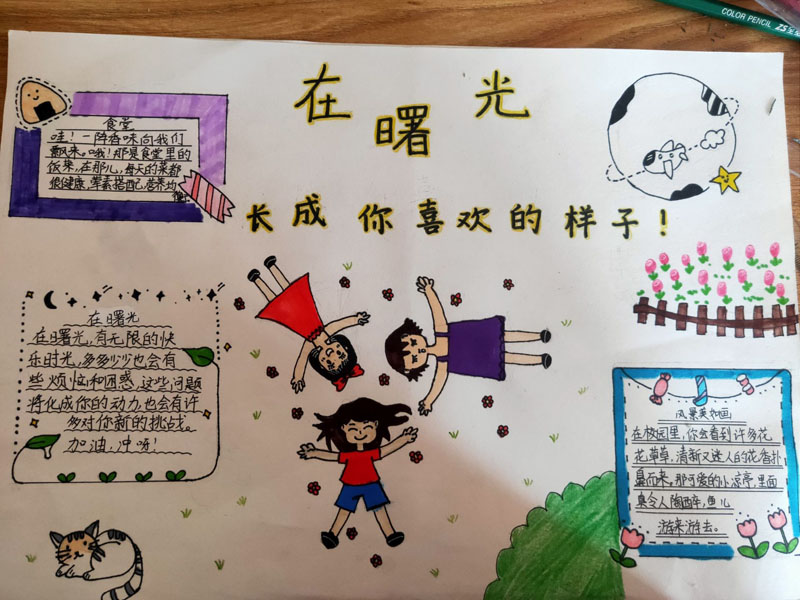 COLOR PENCIL
在曙光
长成你喜欢的样子!
食堂
哇!一阵香味向我们
飘来。哦!那是食堂里的
饭菜,在那儿,每天的菜都
很健康,荤素搭配,营养均
衡
在曙光
在曙光,有无限的快
乐时光,多多少少也会有
些烦恼和困惑,这些问题
将化成你的动力,也会有许
多对你新的挑战。
加油,冲呀!
风景美如画
在校园里,你会看到许多花
花草草,清新又迷人的花香扑
鼻而来,那可爱的小凉亭,里面
令人陶醉,鱼儿
游来游去。